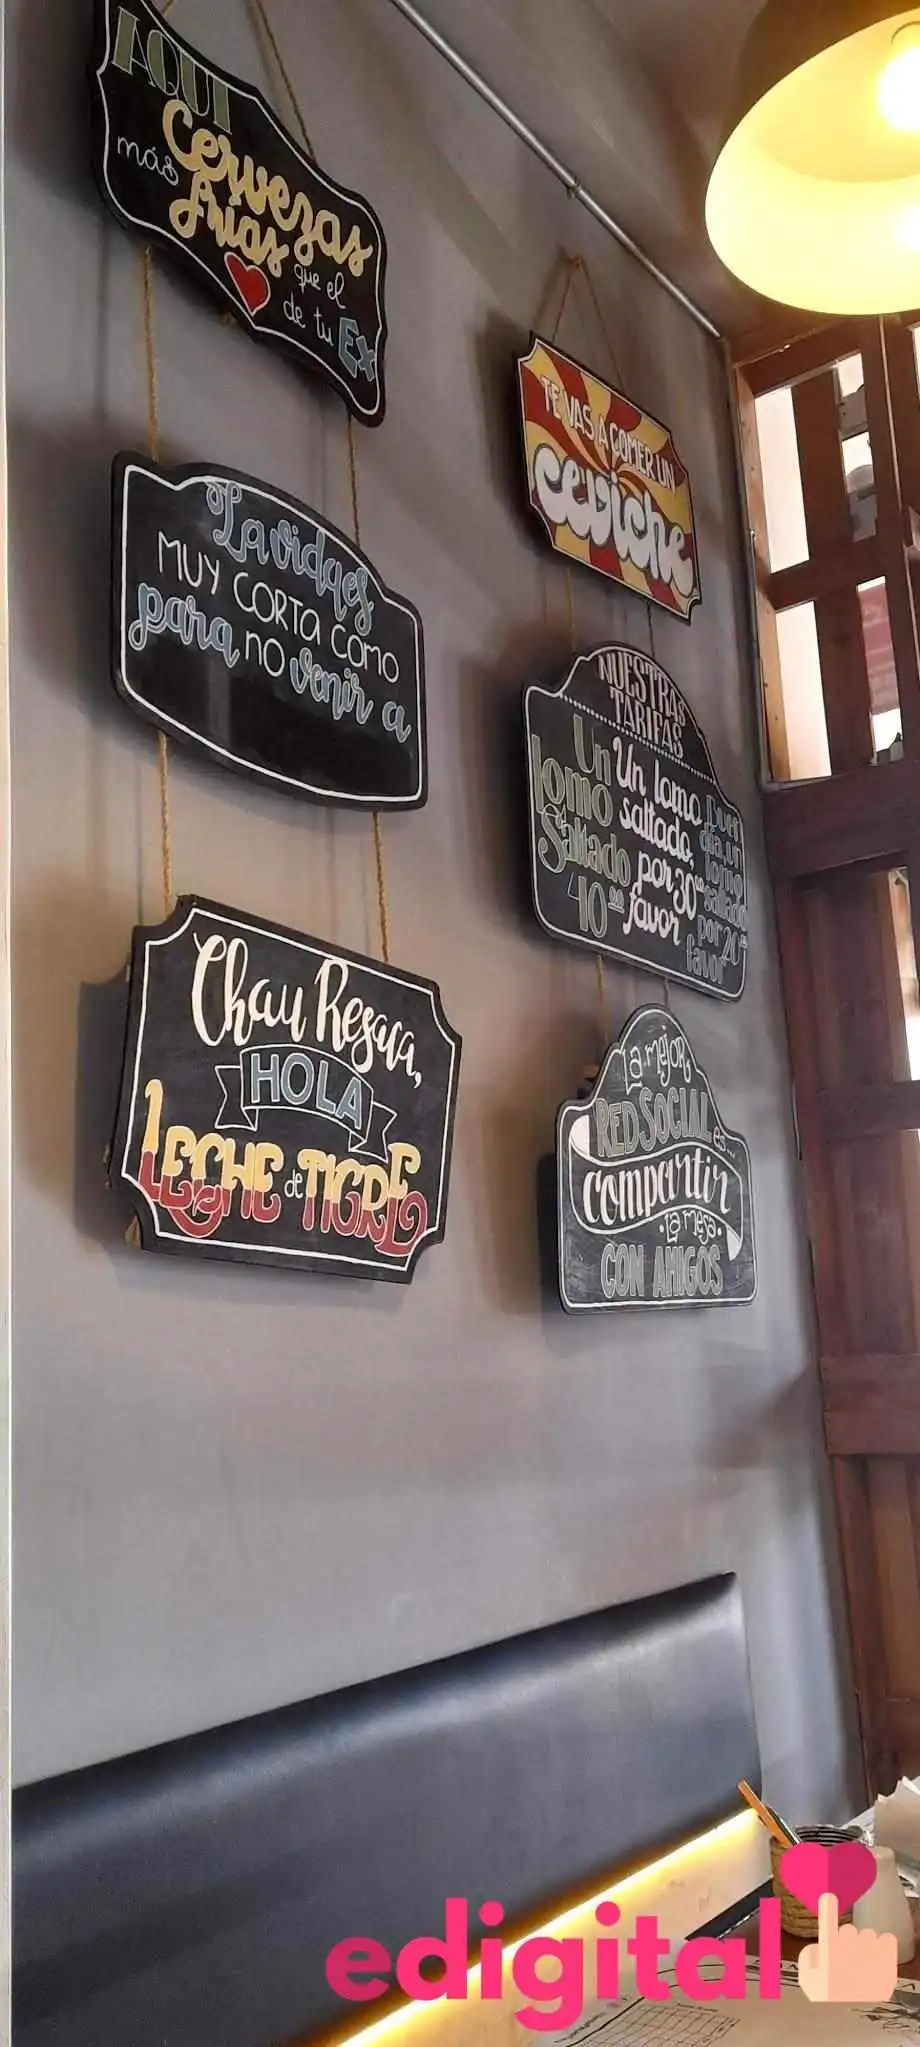 AQUI
Cervezas
más frías
que el
de tu Ex
La vida es
MUY CORTA COMO
para no venir a
Chau Resaca,
HOLA
LECHE de TIGRE
TE VAS A COMER UN
ceviche
NUESTRAS
TARIFAS
Un
lomo
Saltado
40.00
Un lomo
saltado,
por 30.00
favor
Buen
día, un
lomo
saltado
por 20.00
favor
La mejor
RED SOCIAL es...
compartir
·la mesa·
CON AMIGOS
edigital